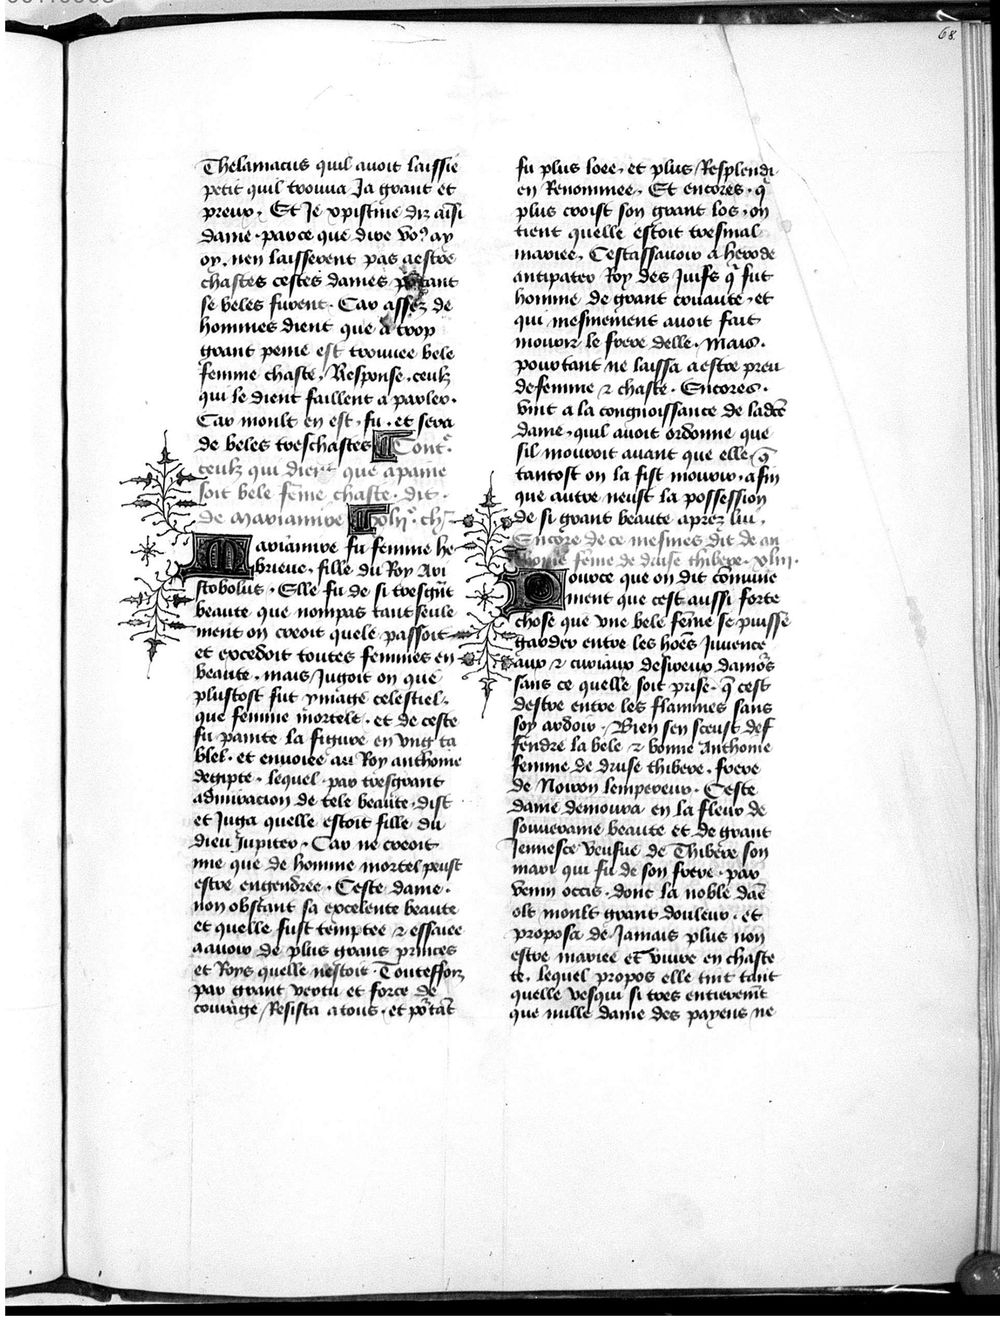 68
Thelamacus quil auoit laissie
petit quil trouua Ja grant et
preux. Et Je xpistine diz aisi
dame. parce que dire vo9 ay
oy. nen laisserent pas aestre
chastes cestes dames pourtant
se beles furent. Car assez de
hommes dient que a trop
grant peine est trouuee bele
femme chaste, Response, ceulx
qui le dient faillent a parler.
Car moult en est, fu. et sera
de beles treschastes Cont'.
ceulx qui dient que apaine
soit bele feme chaste. dit.
de mariamire xlij. ch.
Mariamire fu femme he
brieue. fille du Roy Ari
stobolus. Elle fu de si tresgrat
beaute que nompas tant seule
ment on creoit quele passoit
et excedoit toutes femmes en
beaute. mais Jugoit on que
plustost fut ymage celestiel.
que femme mortele. et de ceste
fu painte la figure en vng ta
blel. et enuoiee au Roy anthoine
degipte. lequel. par tresgrant
admiracion de tele beaute. dist
et Juga quelle estoit fille du
dieu Jupiter. Car ne creoit
mie que de homme mortel peust
estre engendree. Ceste dame.
non obstant sa excelente beaute
et quelle fust temptee & essaiee
aauoir de plus grans princes
et Roys quelle nestoit. Touteffoiz
par grant vertu et force de
courage, Resista a tous. et portat
fu plus loee. et plus Resplendi
en Renommee. Et encores. q
plus croist son grant los, on
tient quelle estoit tresmal
mariee. Cestassauoir a herode
antipater Roy des Juifs q fut
homme de grant cruaute. et
qui mesmement auoit fait
mourir le frere delle. Mais.
pourtant ne laissa aestre preu
defemme & chaste. Encores.
vint a la congnoissance de ladce
dame. quil auoit ordonne que
sil mouroit auant que elle. q
tantost on la fist mourir. afin
que autre neust la possession
de si grant beaute aprez lui.
Encore de ce mesmes dit de an
thoine feme de druse thibere. xliij.
Pource que on dit comune
ment que cest aussi forte
chose que vne bele feme se puisse
garder entre les hoes Juuence
aux & curiaux desireux damors
sans ce quelle soit prise. q cest
destre entre les flammes sans
soy ardoir. Bien sen sceust def
fendre la bele & bonne Anthoine
femme de druse thibere. frere
de Noiron lempereur. Ceste
dame demoura en la fleur de
souueraine beaute et de grant
Jennesce veufue de Thibere son
mari qui fu de son frere. par
venin occis. dont la noble dae
ot moult grant douleur. et
proposa de Jamais plus non
estre mariee et viure en chaste
te. lequel propos elle tint tant
quelle vesqui si tres entieremt
que nulle dame des payens ne